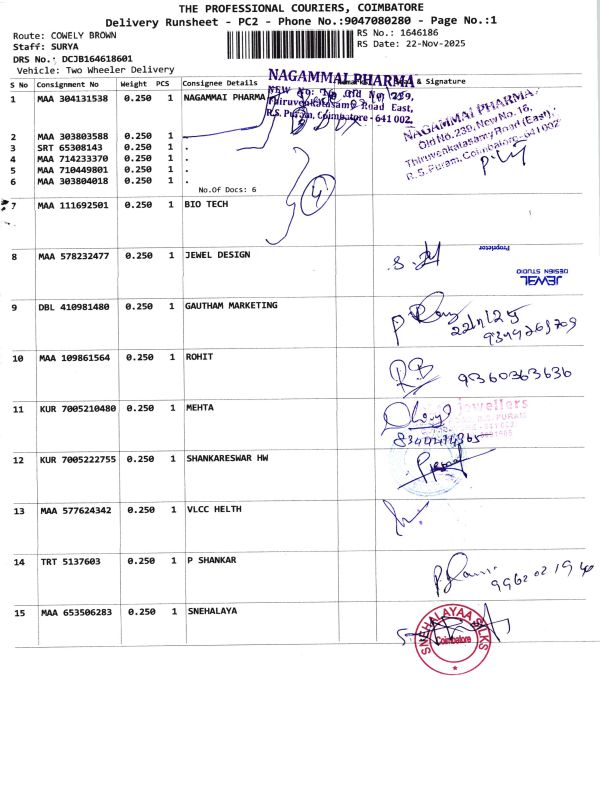 THE PROFESSIONAL COURIERS, COIMBATORE
Delivery Runsheet - PC2 - Phone No.:9047080280 - Page No.:1
Route: COWELY BROWN
RS No.: 1646186
Staff: SURYA
RS Date: 22-Nov-2025
DRS No.: DCJB164618601
Vehicle: Two Wheeler Delivery
S No Consignment No Weight PCS Consignee Details & Signature
1 MAA 304131538 0.250 1 NAGAMMAI PHARMA
NAGAMMAI PHARMA
Thiruvenkatasamy Road East,
R.S. Puram, Coimbatore - 641 002.
NAGAMMAI PHARMA
Old No. 239, New No. 16,
Thiruvenkatasamy Road (East),
R. S. Puram, Coimbatore - 641 002
2 MAA 303803588 0.250 1 .
3 SRT 65308143 0.250 1 .
4 MAA 714233370 0.250 1 .
5 MAA 710449801 0.250 1 .
6 MAA 303804018 0.250 1 .
No.Of Docs: 6
4
7 MAA 111692501 0.250 1 BIO TECH
8 MAA 578232477 0.250 1 JEWEL DESIGN
Proprietor
JEWEL
DESIGN STUDIO
9 DBL 410981480 0.250 1 GAUTHAM MARKETING
22/11/25
10 MAA 109861564 0.250 1 ROHIT
RB 9360363636
11 KUR 7005210480 0.250 1 MEHTA
jewellers
12 KUR 7005222755 0.250 1 SHANKARESWAR HW
13 MAA 577624342 0.250 1 VLCC HELTH
14 TRT 5137603 0.250 1 P SHANKAR
15 MAA 653506283 0.250 1 SNEHALAYA
SNEHALAYAA SILKS
Coimbatore